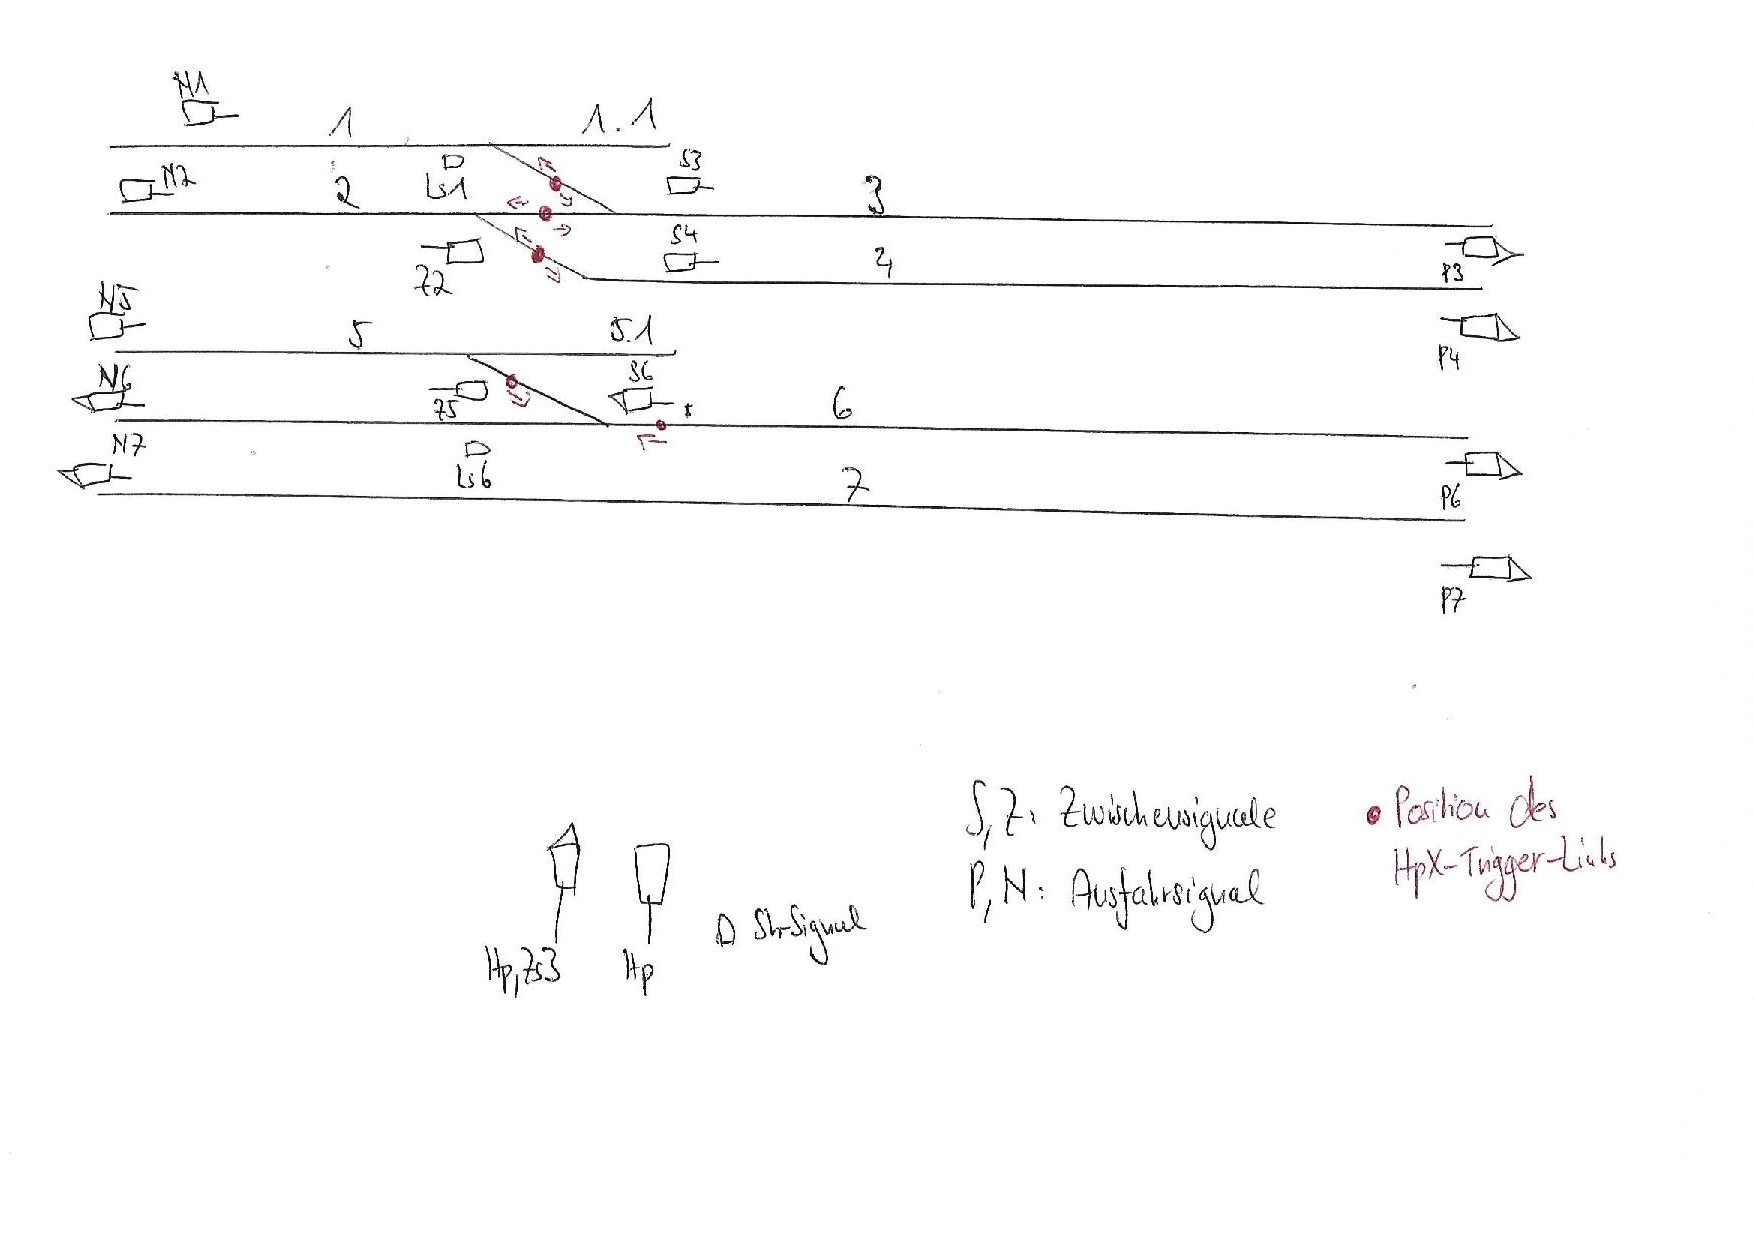 N1
1
1.1
N2
2
Ls1
S3
3
Z2
S4
4
P3
N5
5
5.1
P4
N6
Z5
S6
6
N7
Ls6
7
P6
P7
S, Z: Zwischensignale
P, N: Ausfahrsignal
Position des
HpX-Trigger-Links
Hp, Zs3
Hp
Sh-Signal